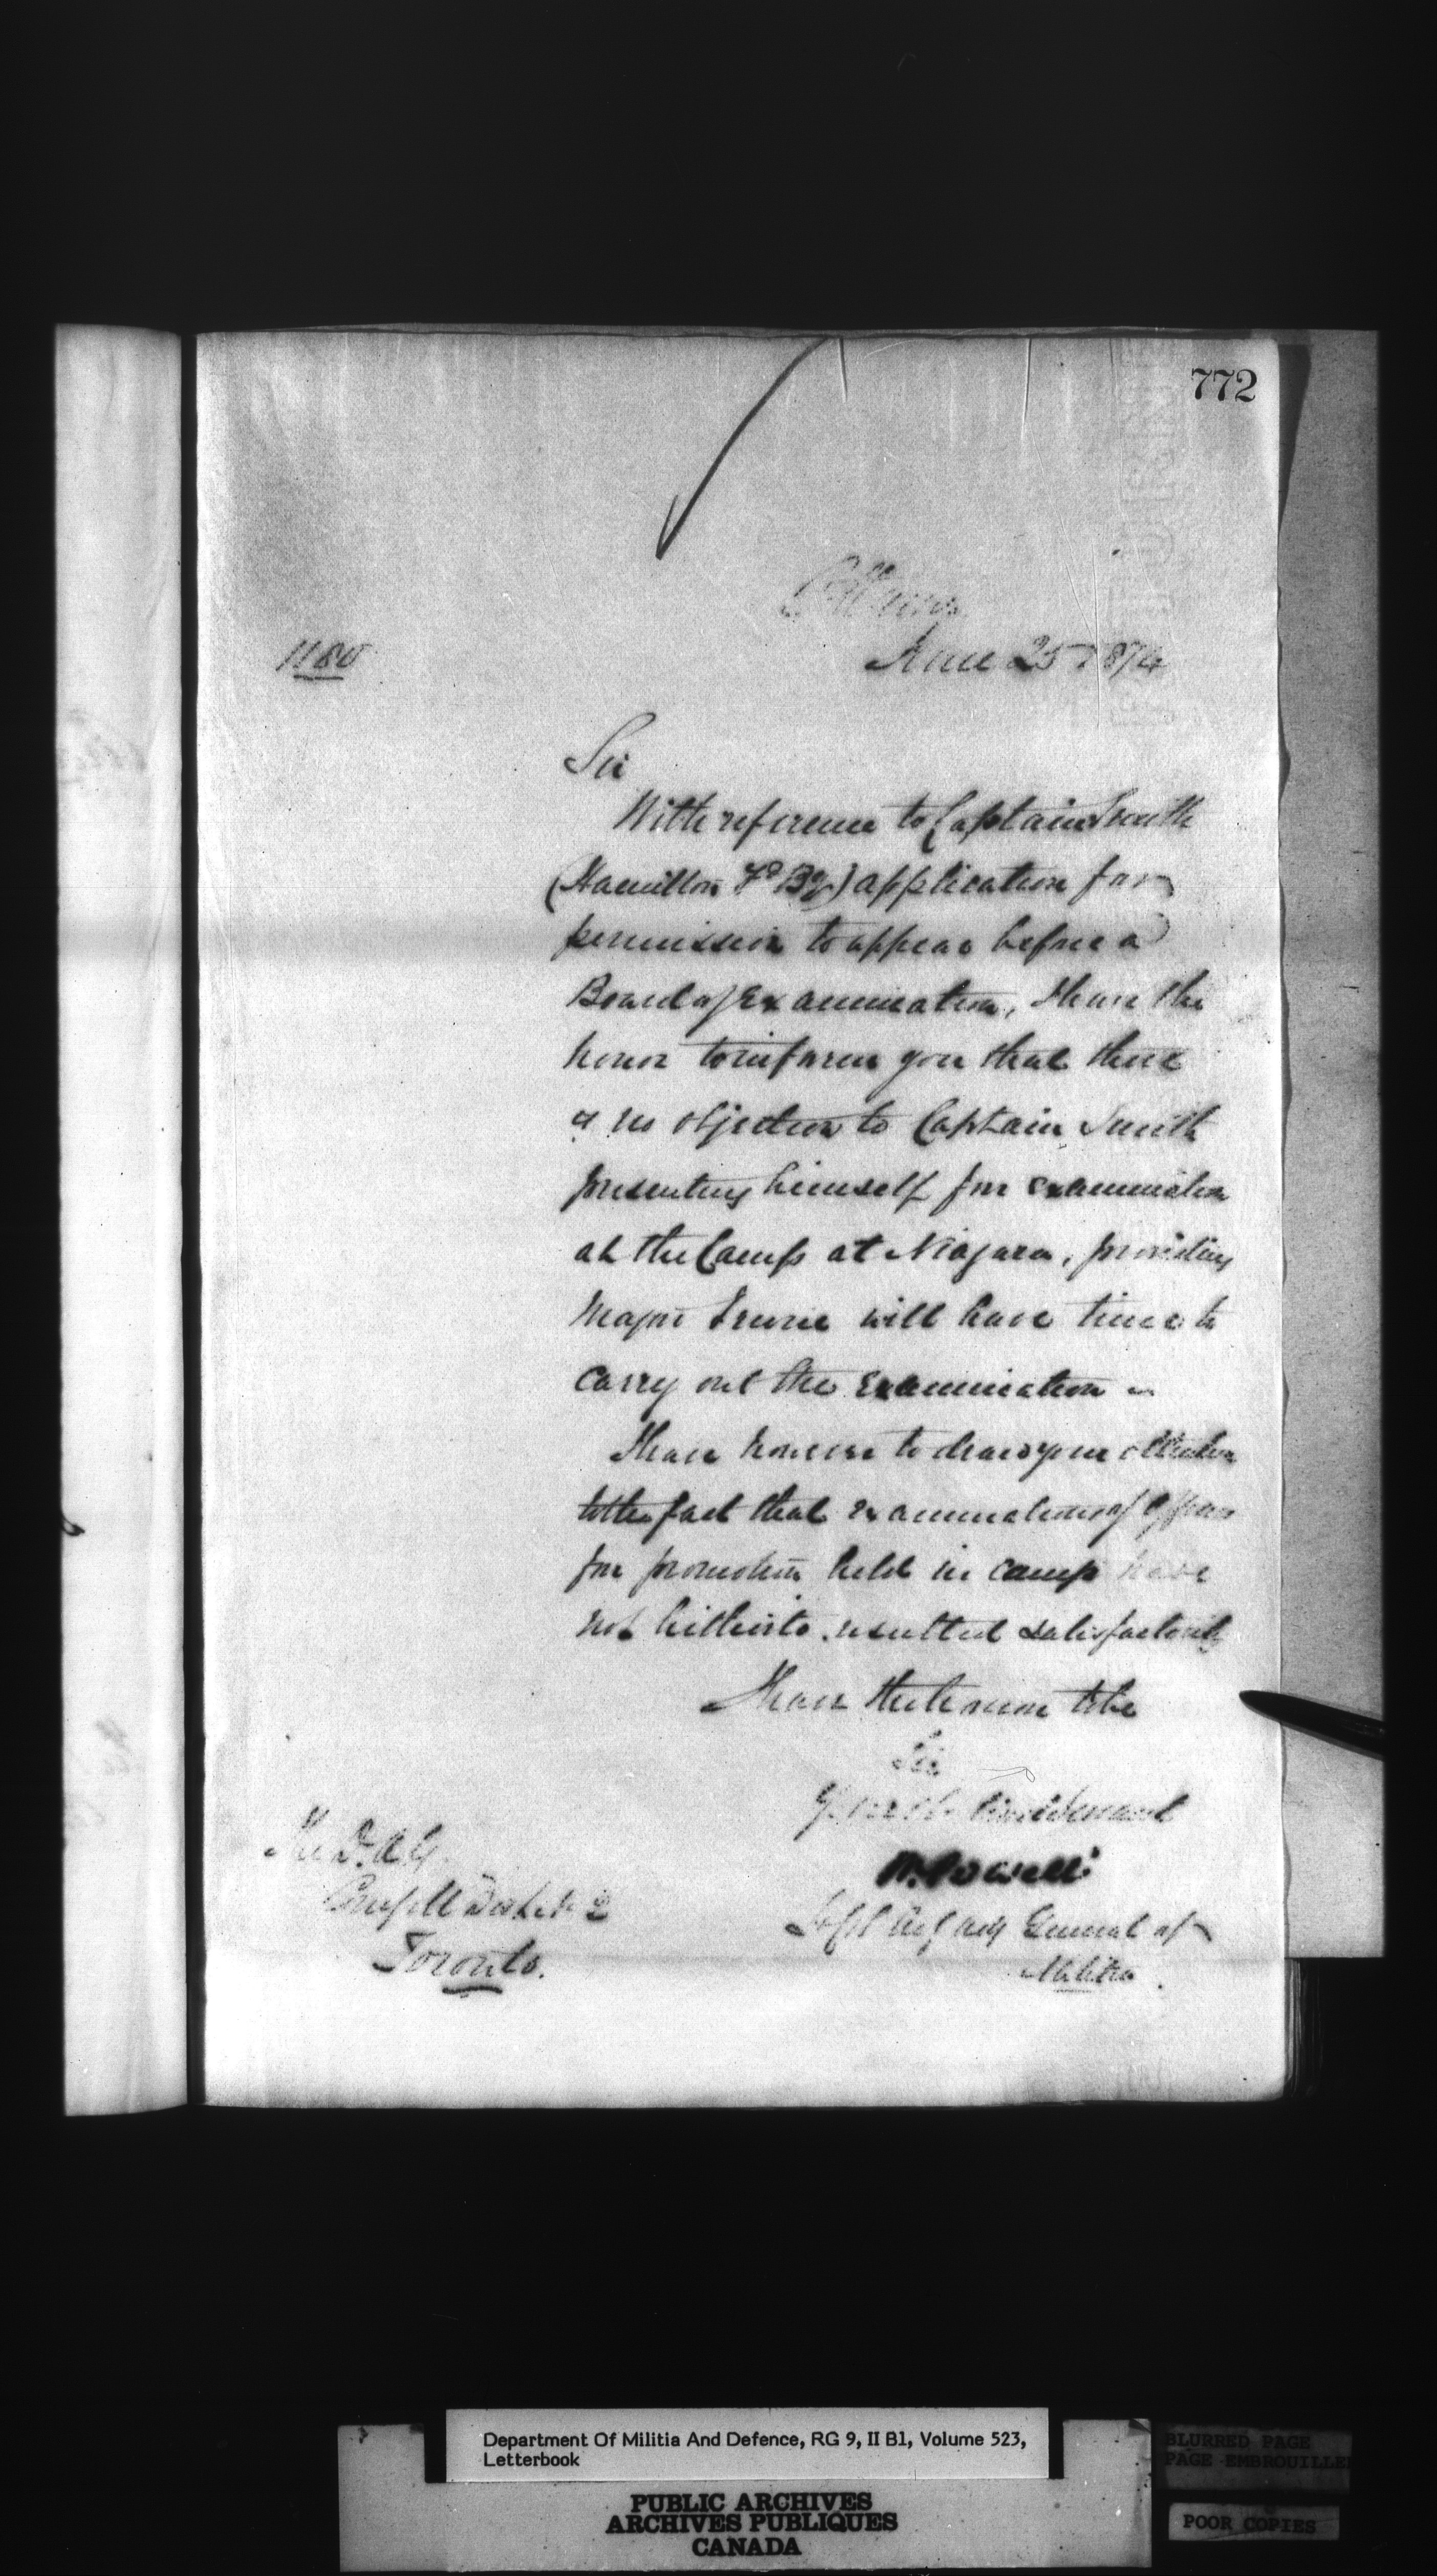 772
Ottawa
1180
June 25 1874
Sir
With reference to Captain Smith
(Hamilton Fd By) application for
permission to appear before a
Board of Examination, I have the
honor to inform you that there
is no objection to Captain Smith
presenting himself for examination
at the Camp at Niagara, providing
Major Irwin will have time to
carry out the Examination
I have however to draw your attention
to the fact that examinations of Officers
for promotion held in camp have
not hitherto resulted satisfactorily
I have the honor to be
Sir
Your Obt
Servant
The D.A.G.
W. Powell
Comg M District No 2
General of
Toronto.
Militia.
Department Of Militia And Defence, RG 9, II B1, Volume 523,
Letterbook
PUBLIC ARCHIVES
ARCHIVES PUBLIQUES
CANADA
BLURRED PAGE
PAGE EMBROUILLE
POOR COPIES